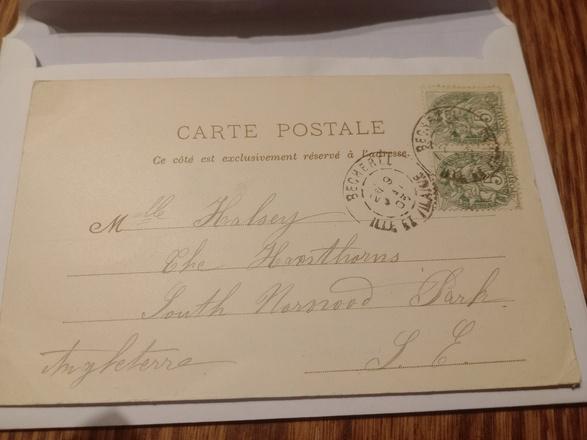 CARTE POSTALE
Ce côté est exclusivement réservé à l'adresse.
BECHEREL
ILLE ET
BECHEREL
ILLE ET VILAINE
5
5
Mlle Halsey
The Hawthorns
South Norwood Park
S. E.
Angleterre